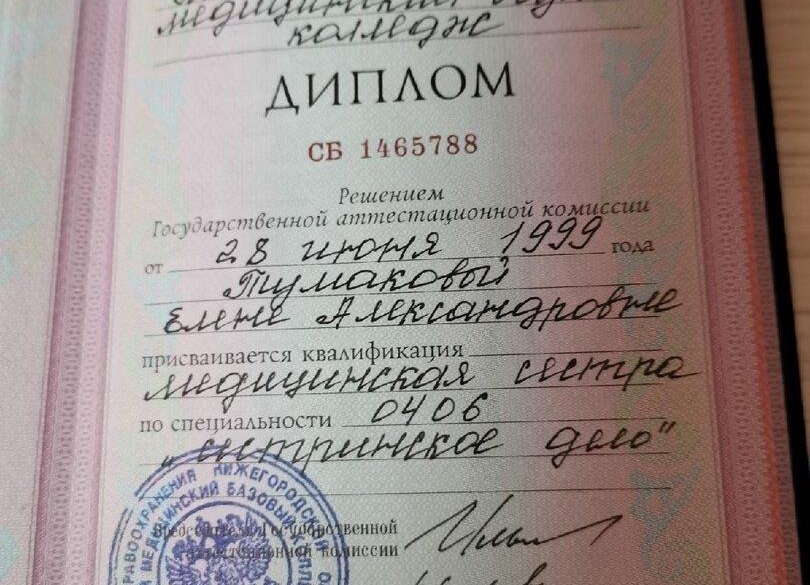 медицинский
колледж
ДИПЛОМ
СБ 1465788
Решением
Государственной аттестационной комиссии
от 28 июня 1999 года
Тумаковой
Елене Александровне
присваивается квалификация
медицинская сестра
по специальности 0406
"сестринское дело"
НИЖЕГОРОДСКОЙ
МЕДИЦИНСКИЙ БАЗОВЫЙ
Председатель Государственной
аттестационной комиссии